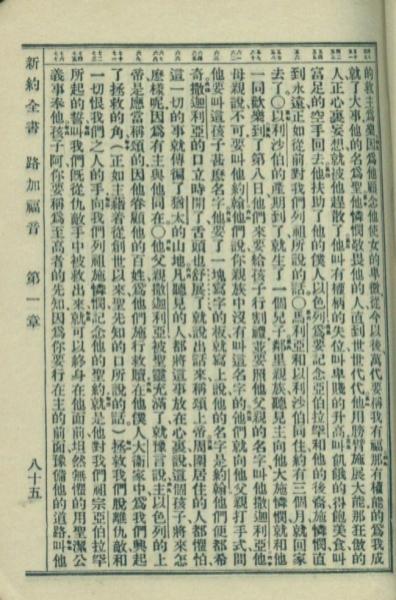 的救主爲樂因爲他顧念他使女的卑微從今以後萬代要稱我有福那有權能的爲我成
就了大事他的名爲聖他憐憫敬畏他的人直到世世代代他用膀臂施展大能那狂傲的
人正心裏妄想就被他趕散了他叫有權柄的失位叫卑賤的升高叫飢餓的得飽美食叫
富足的空手回去他扶助了他的僕人以色列爲要記念亞伯拉罕和他的後裔施憐憫直
到永遠正如從前對我們列祖所說的話○馬利亞和以利沙伯同住約有三個月就回家
去了○以利沙伯的產期到了就生了一個兒子鄰里親族聽見主向他大施憐憫就和他
一同歡樂到了第八日他們來要給孩子行割禮並要照他父親的名字叫他撒迦利亞他
母親說不可要叫他約翰他們說你親族中沒有叫這名字的他們就向他父親打手式問
他要叫這孩子甚麼名字他要了一塊寫字的板就寫上說他的名字是約翰他們便都希
奇撒迦利亞的口立時開了舌頭也舒展了就說出話來稱頌上帝周圍居住的人都懼怕
這一切的事就傳徧了猶太的山地凡聽見的人都將這事放在心裏說這個孩子將來怎
麼樣呢因爲有主與他同在○他父親撒迦利亞被聖靈充滿了就豫言說主以色列的上
帝是應當稱頌的因他眷顧他的百姓爲他們施行救贖在他僕人大衛家中爲我們興起
了拯救的角(正如主藉着從創世以來聖先知的口所說的話)拯救我們脫離仇敵和
一切恨我們之人的手向我們列祖施憐憫記念他的聖約就是他對我們祖宗亞伯拉罕
所起的誓叫我們旣從仇敵手中被救出來就可以終身在他面前坦然無懼的用聖潔公
義事奉他孩子阿你要稱爲至高者的先知因爲你要行在主的前面豫備他的道路叫他
新約全書 路加福音 第一章 八十五